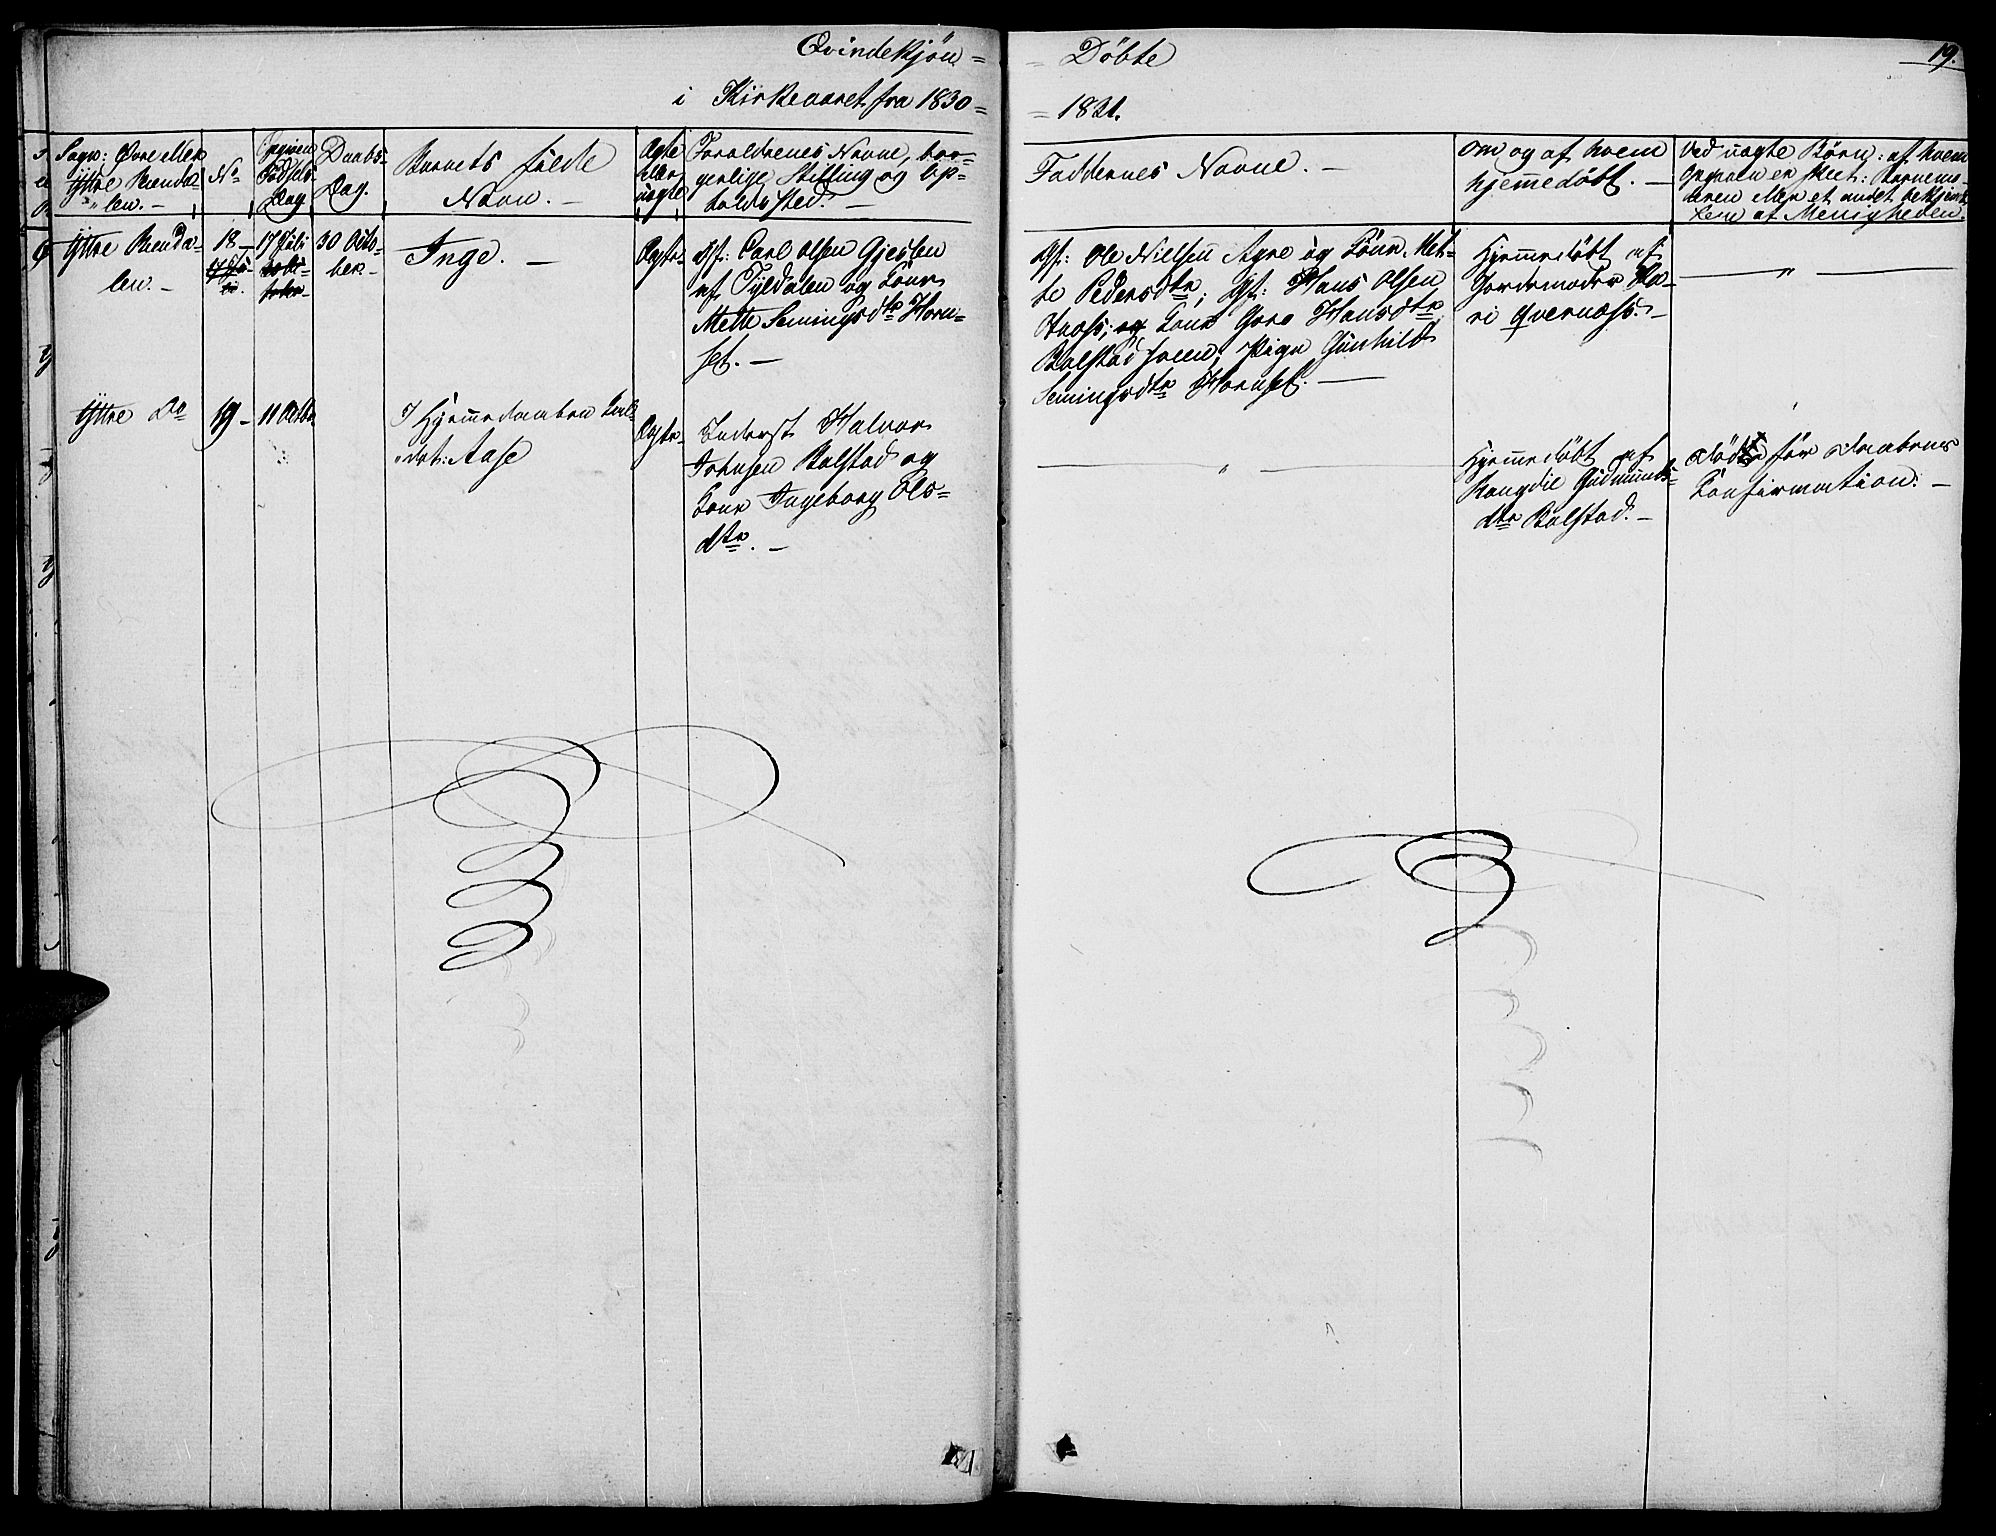 Qvindekjön =
= Döbte
19.
i Kirkeaaret fra 1830 =
= 1831.
Sogn: Övre eller
Yttre Renda-
len. -
No
Opgiven
Födsels-
Dag
Daabs-
Dag.
Barnets fulde
Navn. -
Ægte
eller
uægte
Forældrenes Navne, bor-
gerlige Stilling og Op-
holdssted. -
Faddernes Navne. -
Om og af hvem
hjemmedöbt. -
Ved uægte Börn: af hvem
Opgiven er skeet: Barnemo-
deren eller et andet bekjendt
Lem af Menigheden.
Yttre Renda-
len. -
18 -
17 Juli
30 Octo-
ber. -
Inge. -
Ægte -
Gf: Carl Olsen Gjelten
af Tyldalen og Kone
Mette Semingsdtr Horn-
set. -
Gf: Ole Nielsen Agre og Kone Met-
te Pedersdtr; Gf: Hans Olsen
og Kone Goro Hansdtr
Balstad; Pige Gunhild
Semingsdtr Hornset. -
Hjemmedöbt af
Jordemoder Ka-
ri Qvernæss. -
"
Yttre Do
19 -
11 Octbr
I Hjemmedaaben kal-
det: Aase
Ægte -
Inderst Halvor
Johnsen Balstad og
Kone Ingeborg Ols-
dtr. -
"
Hjemmedöbt af
Gudmunds-
dtr Balstad. -
Död för Daabens
Confirmation. -